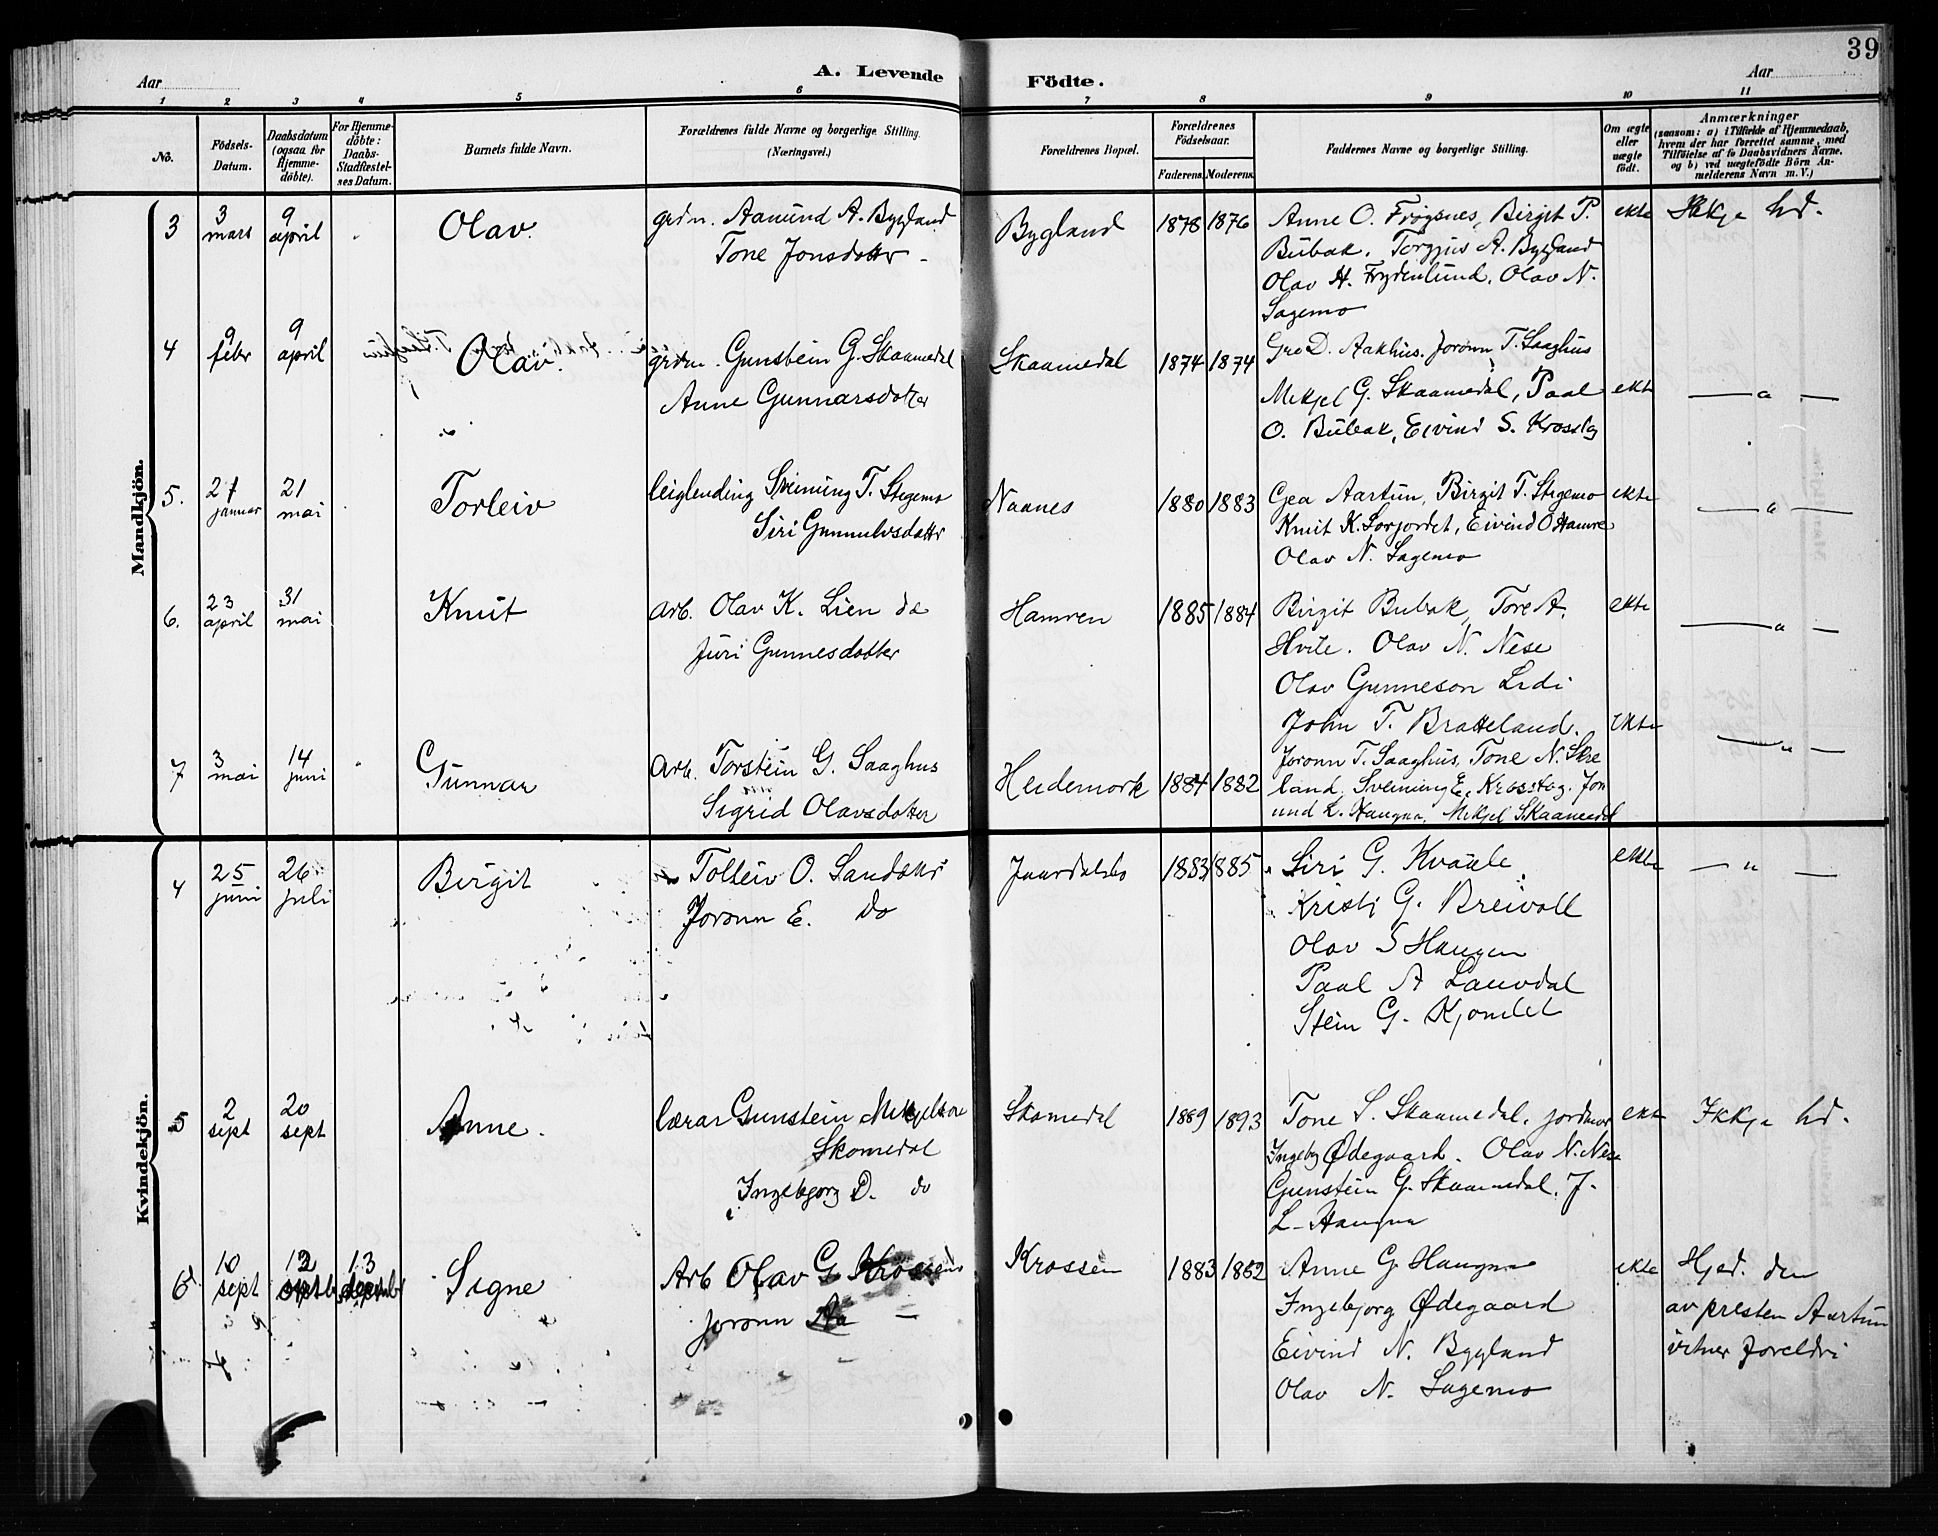 39
Aar
A. Levende Födte.
Aar
1 2 3 4 5 6 7 8 9 10 11
No.
Födsels-
Datum.
Daabsdatum
(ogsaa for
Hjemme-
döbte).
For Hjemme-
döbte:
Daabs-
Stadfæstel-
ses Datum.
Barnets fulde Navn.
Forældrenes fulde Navne og borgerlige Stilling.
(Næringsvei.)
Forældrenes Bopæl.
Forældrenes
Födselsaar.
Faderens. Moderens.
Faddernes Navne og borgerlige Stilling.
Om ægte
eller
uægte
födt.
Anmærkninger
(saasom: a) i Tilfælde af Hjemmedaab,
hvem der har forrettet samme, med
Tilföielse af to Daabsvidners Navne,
og b) ved uægtefödte Börn An-
melderens Navn m. V.)
Mandkjön.
3
3
mars
9
april
Olav.
grdm. Aamund A. Bygland
Tone Jonsdottr
Bygland
1878 1876
Anne O. Frøysnes, Birgit P.
Bubak, Torgjus A. Bygland
Olav H. Frydenlund, Olav N.
Sagemo
ekte
Ikkje hd.
4
9
febr
9
april
Olav.
grdm. Gunstein G. Skaamedal
Anne Gunnarsdotter
Skaamedal
1874 1874
Gro D. Aakhus. Joronn T. Saaghus
Mekjel G. Skaamedal, Paal
O. Bubak, Eivind S. Krosstøg
ekte
— " —
5.
21
januar
21
mai
Torleiv
leiglending Sveinung T. Stegemo
Siri Gunnulvsdottr
Naanes
1880 1883
Gea Aartun, Birgit T. Stegemo
Knut K. Sorjordet, Eivind O Hamre
Olav N. Sagemo
ekte
— " —
6.
23
april
31
mai
Knut
Arb. Olav K. Lien
Juri Gunnesdotter
Hamren
1885 1884
Birgit Bubak, Tore A.
Hvile. Olav N. Nese
Olav Gunneson Lidi
John T. Bratteland.
ekte
— " —
7
3
mai
14
juni
Gunnar
Arb. Torstein G. Saaghus
Sigrid Olavsdotter
Heidemork
1884 1882
Joronn T. Saaghus, Tone N. Skre
land, Sveinung E. Krosstøg. Jon
und L. Haugen, Mekjel Skaamedal
ekte
— " —
Kvindekjön.
4
25
juni
26
juli
Birgit
Tolleiv O. Sandnes
Joronn E. Do
Jaardalsbo
1883 1885
Siri G. Kvaale
Kristi G. Breivoll
Olav S Haugen
Paal A Lauvdal
Stein G. Kjomlet
ekte
— " —
5
2
sept
20
sept
Anne.
lærar Gunstein Mekjelsone
Skomedal
Ingebjorg D. do
Skomedal
1889 1893
Tone S. Skaamedal, jordmor
Ingebj Ødegaard. Olav N. Nese
Gunstein G. Skaamedal, J.
L. Haugen
ekte
Ikkje hd.
6
10
sept
13
septbr
13
septbr
Signe
Arb Olav G Krossen
Joronn Aa —
Krossen
1883 1882
Anne G. Haugen
Ingebjorg Ødegaard
Eivind N. Bygland
Olav N. Sagemo
ekte
Hjed. den
av presten Aartun
vitner foreldri